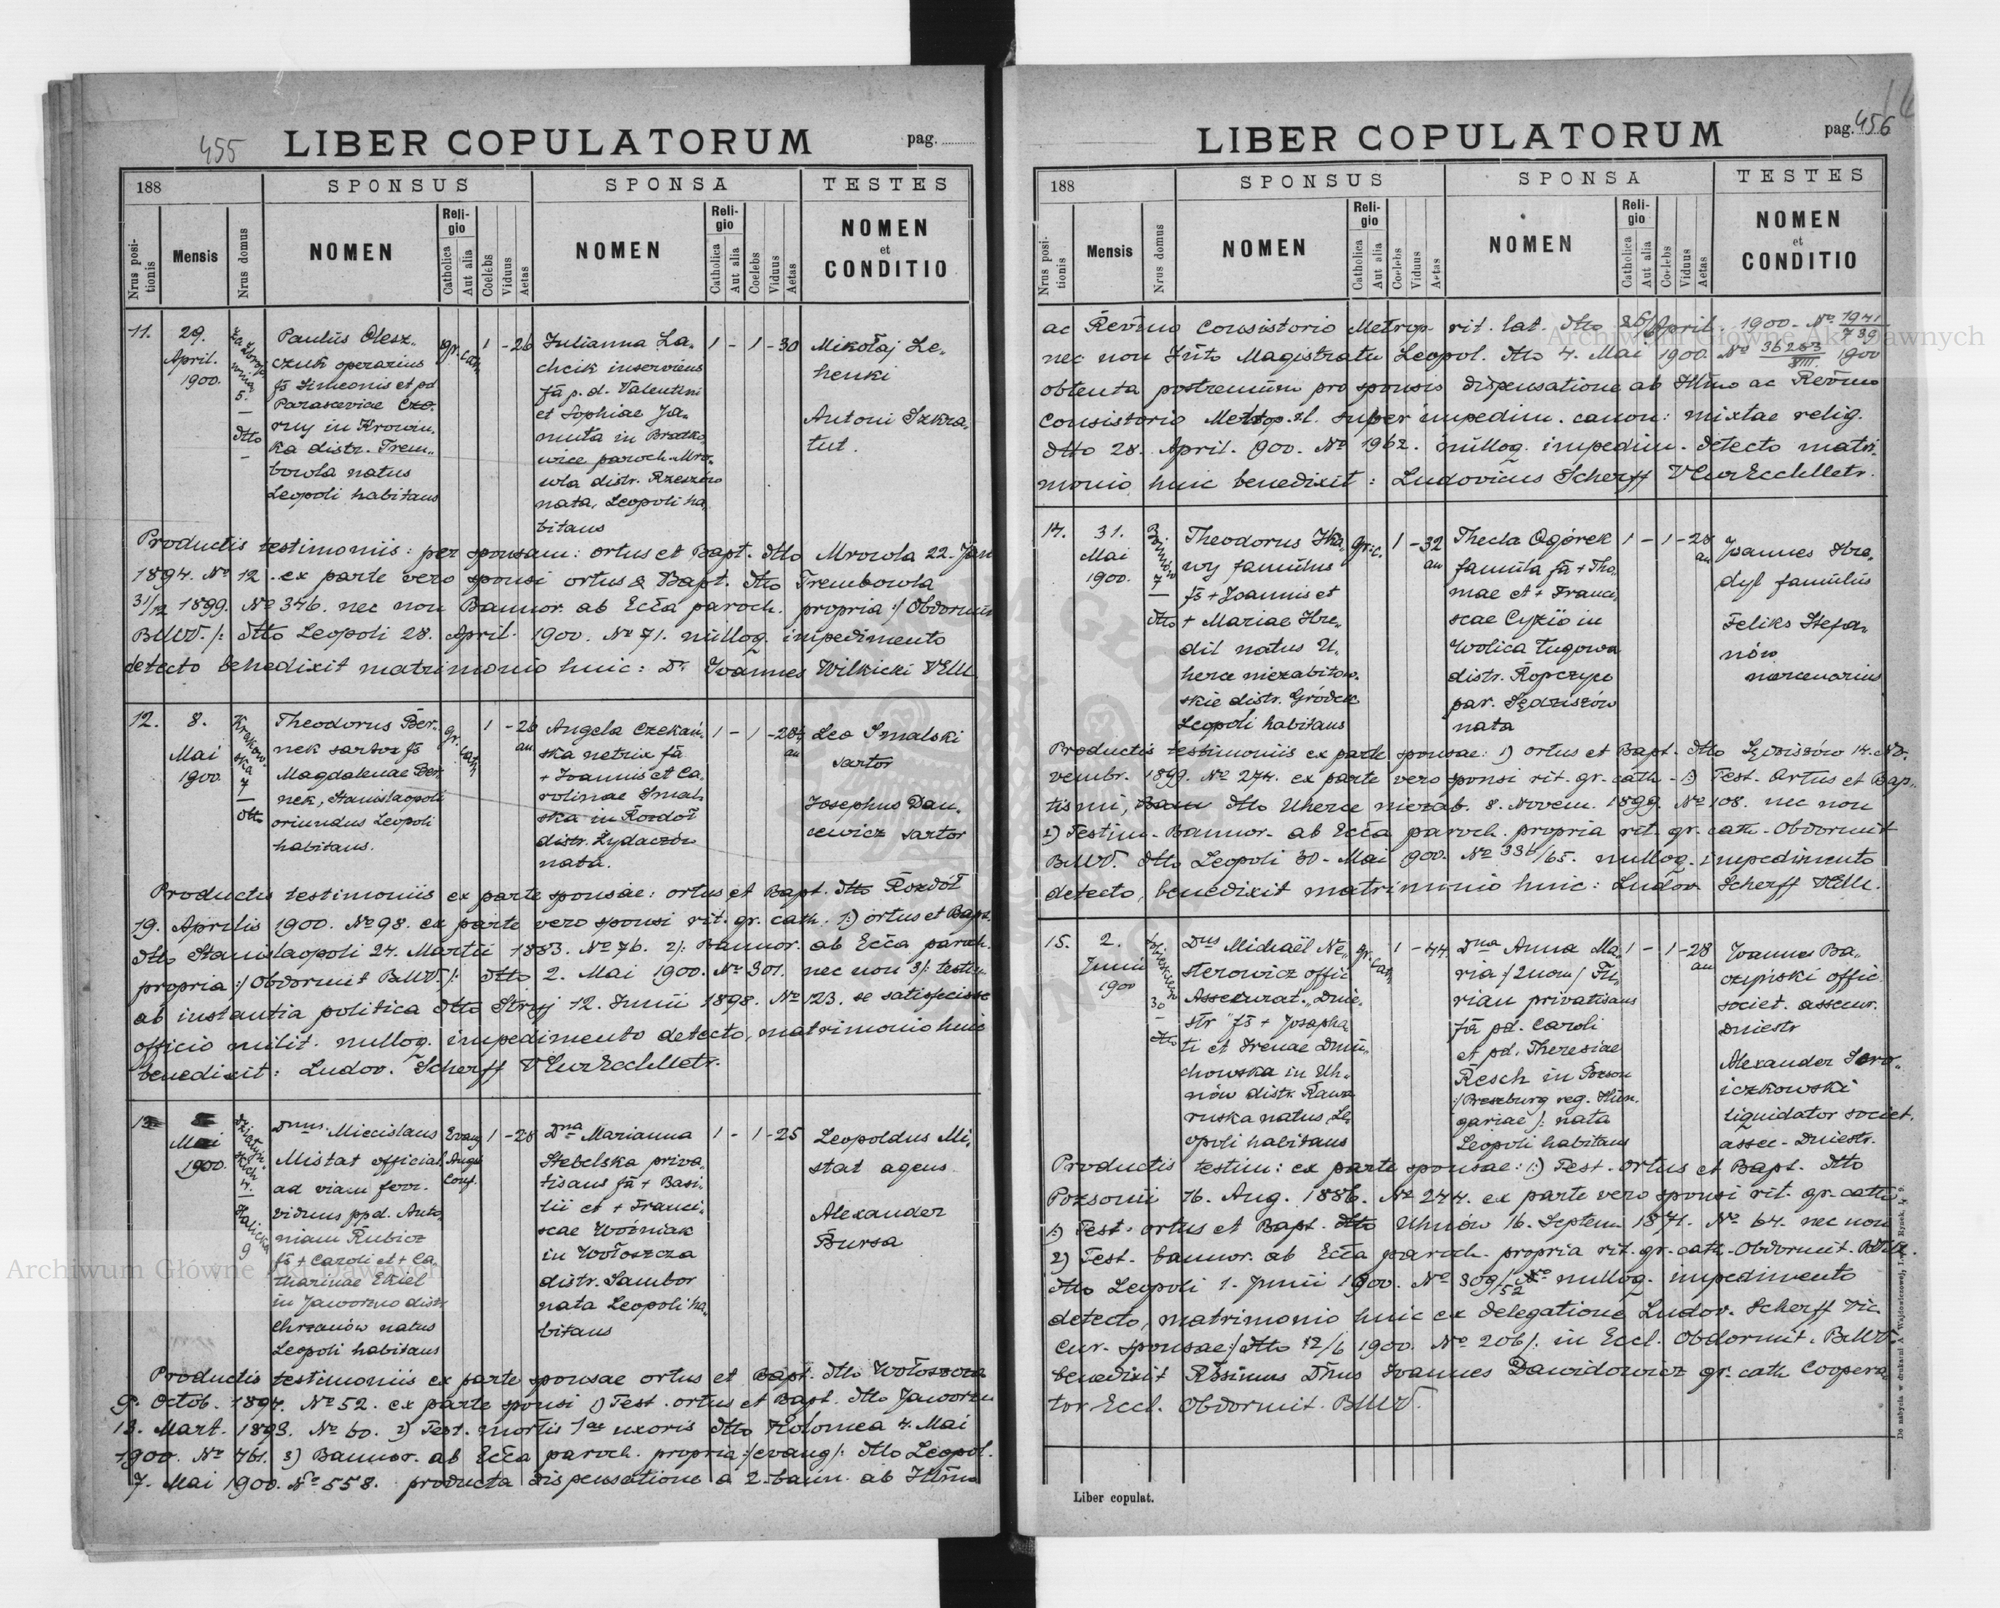 455
LIBER COPULATORUM
pag.
188
SPONSUS
SPONSA
TESTES
Nrus positionis
Mensis
Nrus domus
NOMEN
Religio
Catholica
Aut alia
Coelebs
Viduus
Aetas
NOMEN
Religio
Catholica
Aut alia
Coelebs
Viduus
Aetas
NOMEN
et
CONDITIO
11.
29.
April.
1900.
5.
dtto
Paulus Olesz-
czuk operarius
fs Simeonis et pd
Parasceviae Cze-
rny in Krowin-
ka distr. Trem-
bowla natus
Leopoli habitans
gr. cath.
1 - 26
Julianna La-
chcik inserviens
fa p. d. Valentini
et Sophiae Ja-
muła in Bratko-
wice paroch. Mro-
wla distr. Rzeszów
nata, Leopoli ha-
bitans
1 - 1 - 30
Mikołaj Le-
henki
Antoni Szkra-
tut.
Productis testimoniis: per sponsam: ortus et Bapt. dtto Mrowla 22. Jan
1894. No 12. ex parte vero sponsi ortus & Bapt. dtto Trembowla
31/12 1899. No 346. nec non Bannor. ab Eccła paroch. propria :/ Obdormit
BMV. /: dtto Leopoli 28. April. 1900. No 71. nulloq. impedimento
detecto benedixit matrimonio huic: Dr Joannes Wilkicki VEM.
12.
8.
Mai
1900.
Krakow-
ska
7
dtto
Theodorus Ber-
nek sartor fs
Magdalenae Ber-
nek, Stanislaopoli
oriundus Leopoli
habitans.
gr. cath.
1 - 28
an
Angela Czekań-
ska netrix fa
+ Joannis et Ca-
rolinae Smal-
ska in Rozdoł
distr. Żydaczów
nata.
1 - 1 - 28
an
Leo Smalski
sartor
Josephus Dan-
cewicz sartor
Productis testimoniis ex parte sponsae: ortus et Bapt. dtto Rozdół
19. Aprilis 1900. No 98. ex parte vero sponsi rit. gr. cath. 1:) ortus et Bapt.
dtto Stanislaopoli 24. Martii 1883. No 76. 2/: Bannor. ab Eccła paroch.
propria :/ Obdormit BMV. /: dtto 2. Mai 1900. No 301. nec non 3/: testim
ab instantia politica dtto Stryj 12. Junii 1898. No 123. se satisfecisse
officio milit. nulloq. impedimento detecto, matrimonio huic
benedixit: Ludov. Scherff VCurEcclMetr.
13
Mai
1900.
4.
Halicka
9
Dnus Miecislaus
Mistat official.
ad viam ferr.
viduus ppd. Anto-
niam Rubicz
fs + Caroli et + Ca-
tharinae Ekiel
in Jaworzno distr.
Chrzanów natus
Leopoli habitans
Evang
Augs.
Conf.
1 - 28
Dna Marianna
Stebelska priva-
tisans fa + Basi-
lii et + Franci-
scae Woźniak
in Wołoszcza
distr. Sambor
nata Leopoli ha-
bitans
1 - 1 - 25
Leopoldus Mi-
stat agens
Alexander
Bursa
Productis testimoniis ex parte sponsae ortus et Bapt. dtto Wołoszcza
9. Octob. 1894. No 52. ex parte sponsi 1) Test. ortus et Bapt. dtto Jaworzn
13. Mart. 1893. No 60. 2) Test. mortis 1ae uxoris dtto Kolomea 4. Mai
1900. No 761. 3) Bannor. ab Eccła paroch. propria :/ evang /: dtto Leopol.
7. Mai 1900. No 558. producta dispensatione a 2. bann. ab Illmo
pag. 456
LIBER COPULATORUM
188
SPONSUS
SPONSA
TESTES
Nrus positionis
Mensis
Nrus domus
NOMEN
Religio
Catholica
Aut alia
Coelebs
Viduus
Aetas
NOMEN
Religio
Catholica
Aut alia
Coelebs
Viduus
Aetas
NOMEN
et
CONDITIO
ac Revmo Consistorio Metrop. rit. lat. dtto April. 1900. No 1941/739
nec non Incto Magistratu Leopol. dtto 4. Mai 1900. No 36283/VIII. 1900
obtenta postremum pro sponsis dispensatione ab Illmo ac Revmo
Consistorio Metrop. r.l. super impedim. canon: mixtae relig.
dtto 28. April. 900. No 1962. nulloq. impedim. detecto matri-
monio huic benedixit: Ludovicus Scherff VCurEcclMetr.
14.
31.
Mai
1900.
7
dtto
Theodorus Ska-
wy famulus
fs + Joannis et
+ Mariae Hre-
dil natus U-
herce niezabitow-
skie distr. Gródek
Leopoli habitans
gr. c.
1 - 32
an
Thecla Ogórek
famula fa + Tho-
mae et + Franci-
scae Cyzio in
Wolica Ługowa
distr. Ropczyce
par. Sędziszów
nata
1 - 1 - 28
an
Joannes Hre-
dyl famulus
Feliks Stefa-
nów
mercenarius
Productis testimoniis ex parte sponsae: 1) ortus et Bapt. dtto Sędziszów 14. No-
vembr. 1899. No 274. ex parte vero sponsi rit. gr. cath. - 1:) Test. Ortus et Bap-
tismi, dtto Uherce niezab. 8. Novem. 1899. No 108. nec non
2) Testim. Bannor. ab Eccła paroch. propria rit. gr. cath. Obdormit
BMV. dtto Leopoli 30. Mai 900. No 336/65. nulloq. impedimento
detecto, benedixit matrimonio huic: Ludov Scherff VEM.
15.
2.
Junii
1900
30
dtto
Dnus Michaël Ne-
sterowicz offic.
Assekurat. „Dnie-
str" fs + Josapha-
ti et Irenae Dmu-
chowska in Uh-
nów distr. Rawa
ruska natus, Le-
opoli habitans
gr. cath.
1 - 44
Dna Anna Ma-
ria :/ 2nom / Fu-
rian privatisans
fa pd. Caroli
et pd. Theresiae
Resch in Pozson
:/ Preszburg reg. Hun-
gariae /: nata
Leopoli habitans
1 - 1 - 28
an
Joannes Ba-
czyński offic.
societ. assecur.
Dniestr
Alexander
iczkowski
liquidator societ.
assec. Dniestr.
Productis testim: ex parte sponsae: 1:) Test. ortus et Bapt. dtto
Pozsonii 16. Aug. 1886. No 244. ex parte vero sponsi rit. gr. cath
1:) Test. ortus et Bapt. dtto Uhnów 16. Septem 1871. No 64. nec non
2) Test. bannor. ab Eccła paroch. propria rit. gr. cath. Obdormit. BMV.
dtto Leopoli 1. Junii 1900. No 309/52 nulloq. impedimento
detecto, matrimonio huic ex delegatione Ludov. Scherff Vic.
Cur. sponsae :/ dtto 12/6 1900. No 206 /: in Eccl. Obdormit. BMV.
benedixit Rssimus Dnus Joannes Dawidowicz gr. cath Coopera-
tor Eccl. Obdormit. BMV.
Liber copulat.
Archiwum Główne Akt Dawnych
Archiwum Główne Akt Dawnych